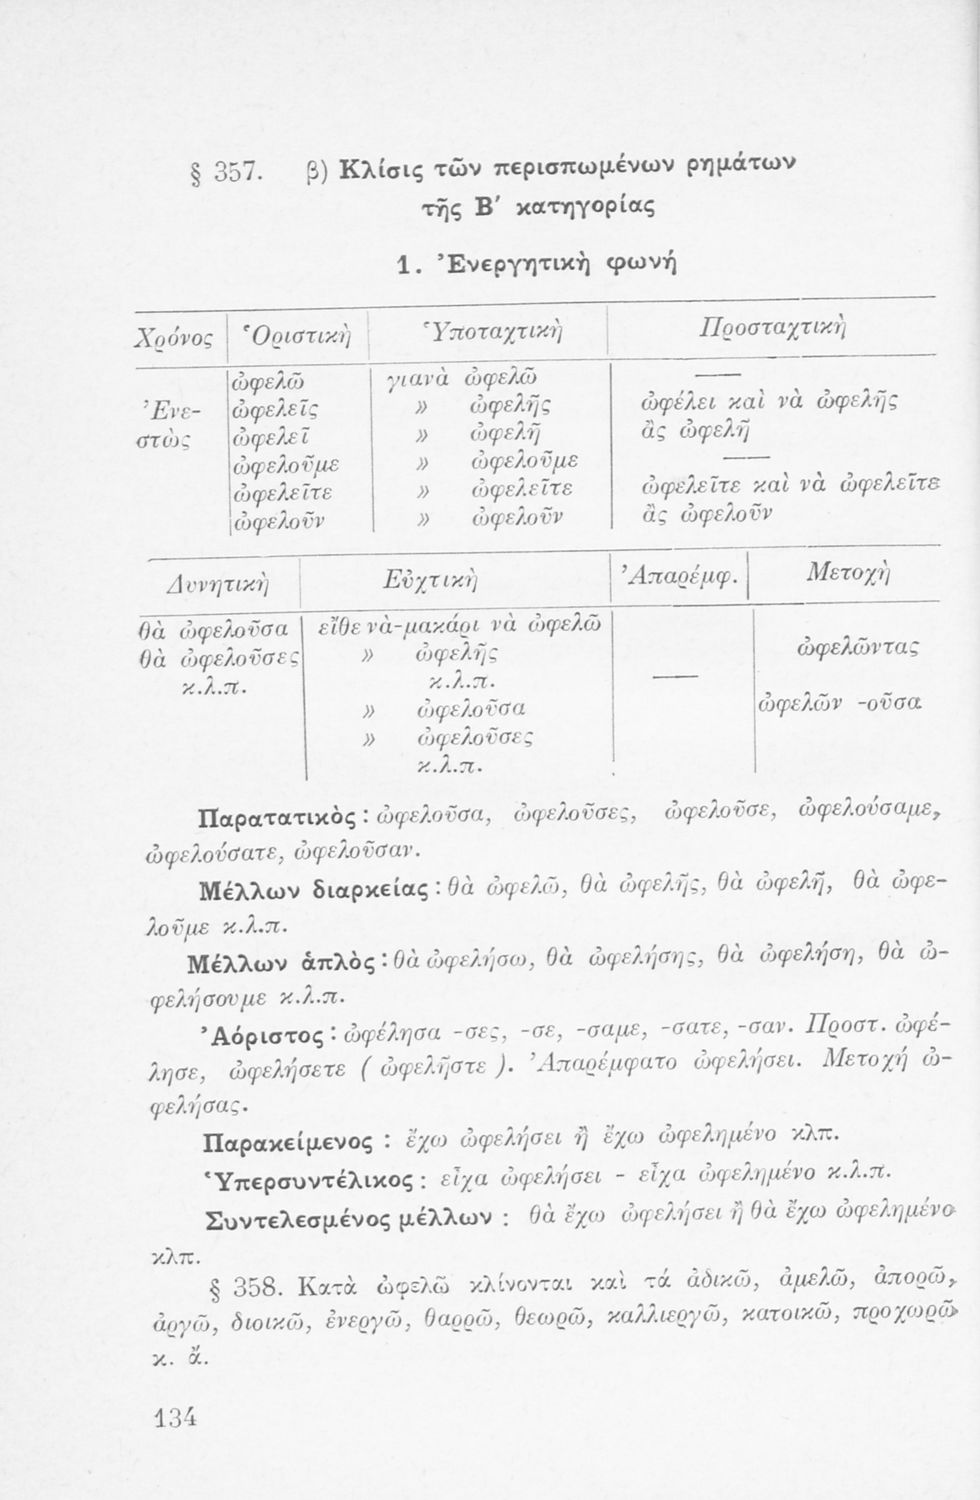 § 357. β) Κλίσις τῶν περισπωμένων ρημάτων
τῆς Β′ κατηγορίας
1. Ἐνεργητικὴ φωνή
Χρόνος Ὁριστικὴ Ὑποταχτικὴ Προσταχτικὴ
ὠφελῶ γιανὰ ὠφελῶ ——
Ἐνε- ὠφελεῖς » ὠφελῆς ὠφέλει καὶ νὰ ὠφελῆς
στὼς ὠφελεῖ » ὠφελῆ ἂς ὠφελῆ
ὠφελοῦμε » ὠφελοῦμε ——
ὠφελεῖτε » ὠφελεῖτε ὠφελεῖτε καὶ νὰ ὠφελεῖτε
ὠφελοῦν » ὠφελοῦν ἂς ὠφελοῦν
Δυνητικὴ Εὐχτικὴ Ἀπαρέμφ. Μετοχὴ
θὰ ὠφελοῦσα εἴθε νὰ-μακάρι νὰ ὠφελῶ
θὰ ὠφελοῦσες » ὠφελῆς ὠφελῶντας
κ.λ.π. κ.λ.π. ——
» ὠφελοῦσα ὠφελῶν -οῦσα
» ὠφελοῦσες
κ.λ.π.
Παρατατικὸς: ὠφελοῦσα, ὠφελοῦσες, ὠφελοῦσε, ὠφελούσαμε,
ὠφελούσατε, ὠφελοῦσαν.
Μέλλων διαρκείας: θὰ ὠφελῶ, θὰ ὠφελῆς, θὰ ὠφελῆ, θὰ ὠφε-
λοῦμε κ.λ.π.
Μέλλων ἁπλὸς: θὰ ὠφελήσω, θὰ ὠφελήσης, θὰ ὠφελήση, θὰ ὠ-
φελήσουμε κ.λ.π.
Ἀόριστος: ὠφέλησα -σες, -σε, -σαμε, -σατε, -σαν. Προστ. ὠφέ-
λησε, ὠφελήσετε ( ὠφελῆστε ). Ἀπαρέμφατο ὠφελήσει. Μετοχή ὠ-
φελήσας.
Παρακείμενος : ἔχω ὠφελήσει ἢ ἔχω ὠφελημένο κλπ.
Ὑπερσυντέλικος : εἶχα ὠφελήσει - εἶχα ὠφελημένο κ.λ.π.
Συντελεσμένος μέλλων : θὰ ἔχω ὠφελήσει ἢ θὰ ἔχω ὠφελημένο
κλπ.
§ 358. Κατὰ ὠφελῶ κλίνονται καὶ τά ἀδικῶ, ἀμελῶ, ἀπορῶ,
ἀργῶ, διοικῶ, ἐνεργῶ, θαρρῶ, θεωρῶ, καλλιεργῶ, κατοικῶ, προχωρῶ
κ. ἄ.
134